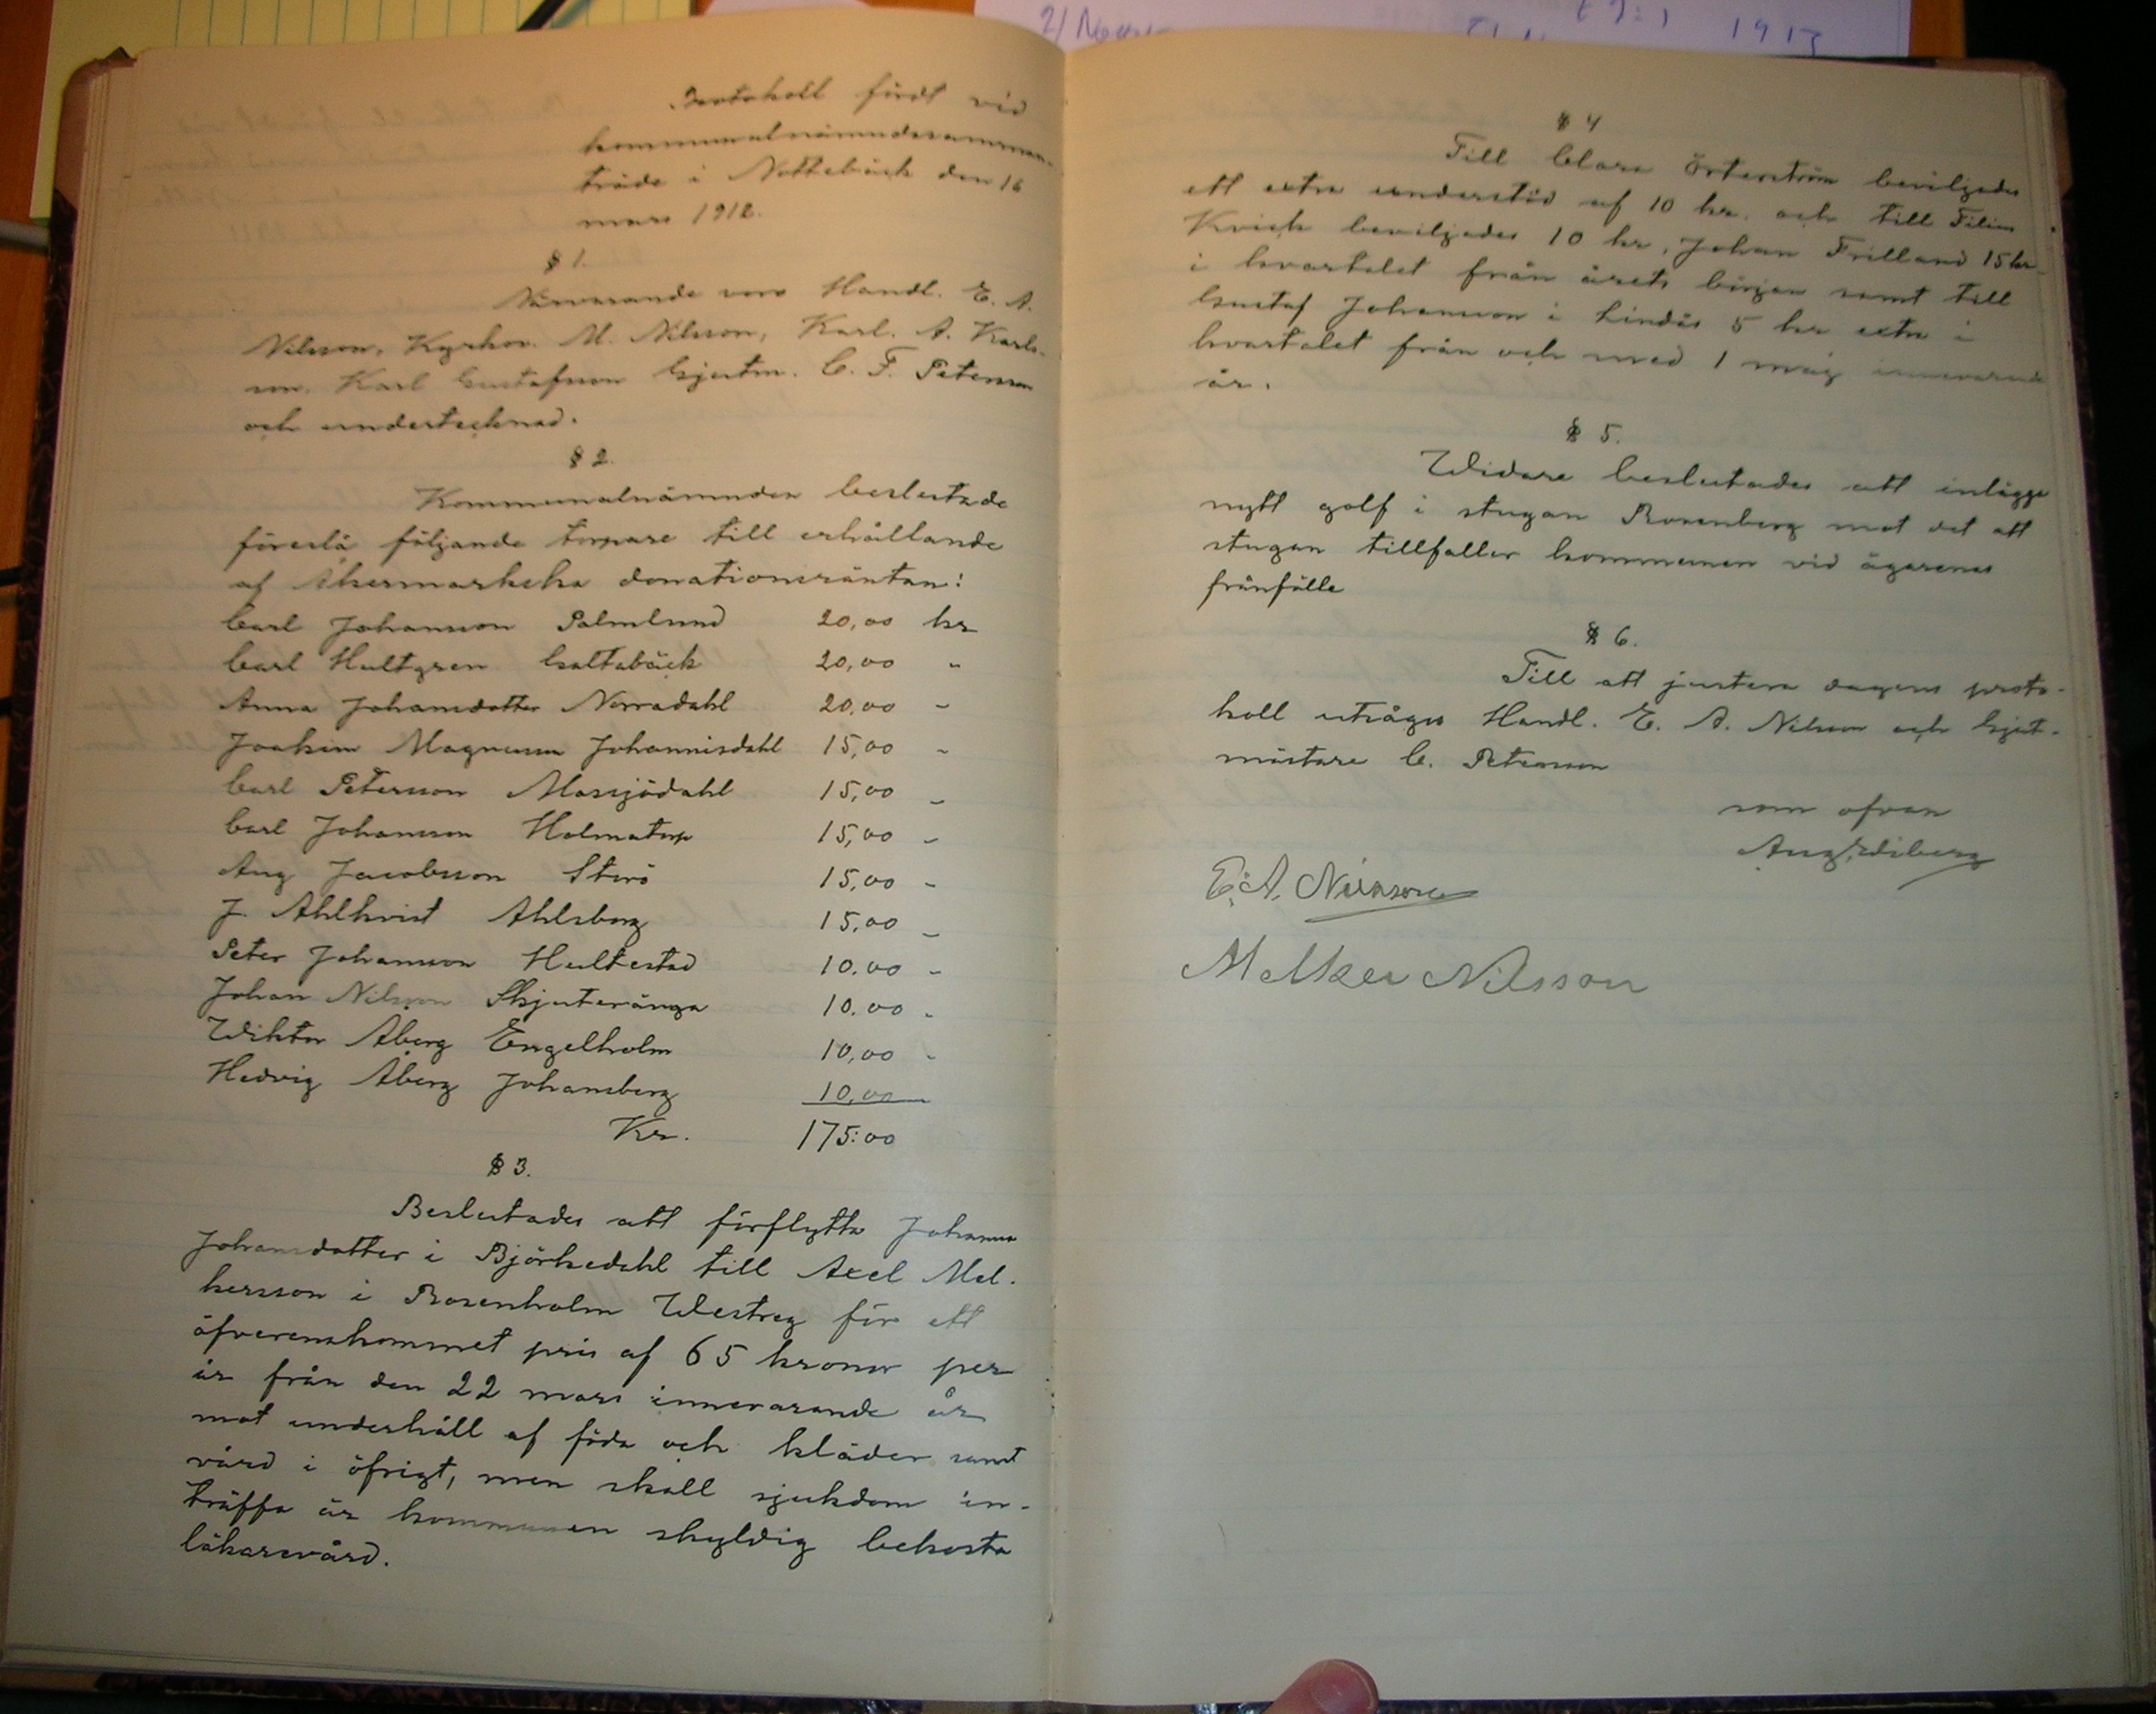 2/
1913
Protokoll fördt vid
kommunalnämndssamman-
träde i Nottebäck den 16
mars 1912.
§ 1.
Närvarande voro Handl. E. A.
Nilsson, Kyrkov. M. Nilsson, Karl. A. Karls-
son, Karl Gustafsson Gjutm. C. F. Peterson
och undertecknad.
§ 2.
Kommunalnämnden beslutade
föreslå följande torpare till erhållande
af Åkermarkska donationsräntan:
Carl Johansson Palmlund 20,00 kr
Carl Hultgren Galtabäck 20,00 "
Anna Johansdotter Norradahl 20,00 "
Joakim Magnusson Johannisdahl 15,00 "
Carl Petersson Mossjödahl 15,00 "
Carl Johansson Holmatorp 15,00 "
Aug Jacobsson Sterö 15,00 "
J. Ahlkvist Ahlsberg 15,00 "
Peter Johansson Hultestad 10.00 "
Johan Nilsson Skjuteränga 10.00 "
Wiktor Åberg Engelholm 10,00 "
Hedvig Åberg Johansberg 10,00
Kr. 175:00
§ 3.
Beslutades att förflytta Johanna
Johansdotter i Björkedahl till Axel Mel-
kersson i Rosenholm Westreg för ett
öfverenskommet pris af 65 kronor per
år från den 22 mars innevarande år
mot underhåll af föda och kläder samt
vård i öfrigt, men skall sjukdom in-
träffa är kommunen skyldig bekosta
läkarevård.
§ 4
Till Clara Österström beviljades
ett extra understöd af 10 kr. och till
Kvick beviljades 10 kr, Johan Frilland 15 kr
i kvartalet från årets början samt till
Gustaf Johansson i Lindås 5 kr extra i
kvartalet från och med 1 maj innevarande
år.
§ 5.
Widare beslutades att inlägga
nytt golf i stugan Rosenberg mot det att
stugan tillfaller kommunen vid ägarenes
frånfälle
§ 6.
Till att justera dagens proto-
koll utsågos Handl. E. A. Nilsson och Gjut-
mästare C. Peterson
som ofvan
Aug. Edberg
E. A. Nilsson
Melker Nilsson